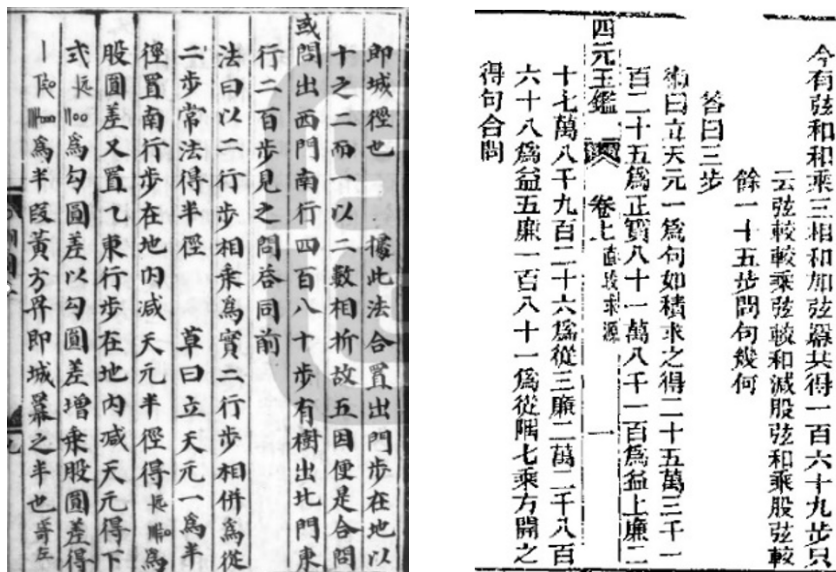 即城徑也 據此法合置出門步在地以
十之二而一以二數相折故五因便是合問
或問出西門南行四百八十步有樹出北門東
行二百步見之問答同前
法曰以二行步相乘爲實二行步相併爲從
二步常法得半徑 草曰立天元一爲半
徑置南行步在地內減天元半徑得 爲
股圓差又置乙東行步在地內減天元得下
式 爲勾圓差以勾圓差增乘股圓差得
爲半段黃方冪即城冪之半也寄左
今有弦和和乘三相和加弦冪共得一百六十九步只
云弦較較乘弦較和減股弦和乘股弦較
餘一十五步問句幾何
答曰三步
術曰立天元一爲句如積求之得二十五萬三千一
百二十五爲正實八十一萬八千一百爲益上廉二
四元玉鑑 卷七 直段求源 一
十七萬八千九百二十六爲從三廉二萬二千八百
六十八爲益五廉一百八十一爲從隅七乘方開之
得句合問